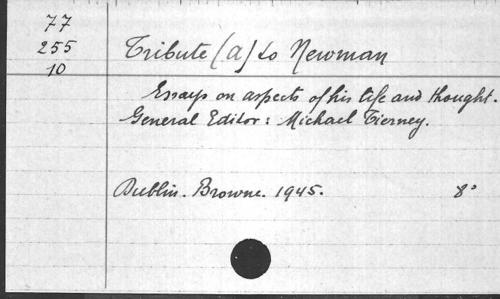 77
255
10
Tribute (a) to Newman
Essays on aspects of his life and thought.
General Editor: Michael Tierney.
Dublin. Browne. 1945. 8°